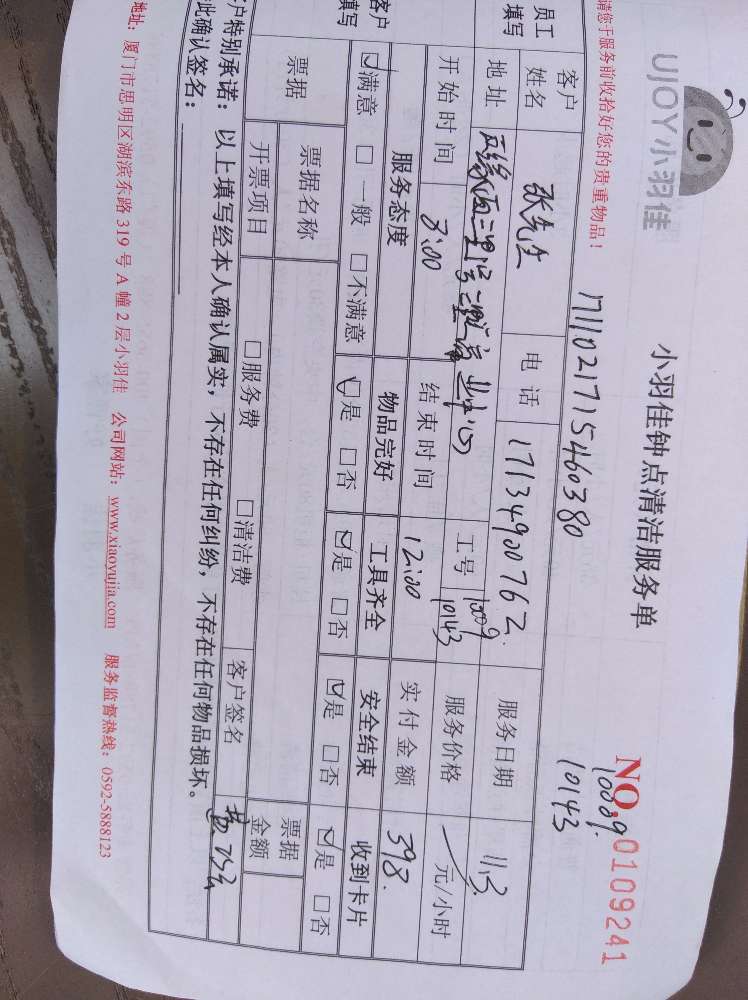 UJOY小羽佳
小羽佳钟点清洁服务单
NO.0109241
请您于服务前收拾好您的贵重物品！
1711021715460380
10089.
10143
员工填写
客户姓名 张先生 电话 17134900762. 服务日期 11.3.
地址 工号 10089. 10143 服务价格 元/小时
开始时间 8:00 结束时间 12:00 实付金额 398.
客户填写
服务态度 物品完好 工具齐全 安全结束 收到卡片
☑满意 □一般 □不满意 ☑是 □否 ☑是 □否 ☑是 □否 ☑是 □否
票据 票据名称 票据金额
开票项目 □服务费 □清洁费 客户签名
客户特别承诺：以上填写经本人确认属实，不存在任何纠纷，不存在任何物品损坏。
此确认签名：
地址：厦门市思明区湖滨东路319号A幢2层小羽佳 公司网站：www.xiaoyujia.com 服务监督热线：0592-5888123